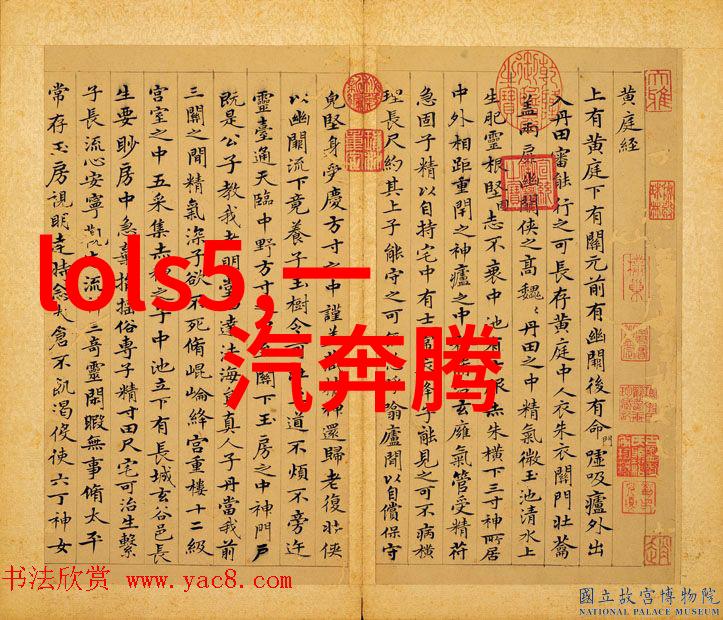 黄庭経
上有黄庭下有關元前有幽闕後有命門嘘吸廬外出
入丹田審能行之可長存黄庭中人衣朱衣關門壯蘥
盖兩扉幽闕俠之高魏〻丹田之中精氣微玉池清水上
生肥靈根堅固志不衰中池有 朱横下三寸神所居
中外相距重閉之神廬之中 玄廱氣管受精符
急固子精以自持宅中有士常衣絳子能見之可不病横
理長尺約其上子能守之可 翕廬間以自償保守
兒堅身受慶方寸之中謹盖藏精神還歸老復壯俠
以幽闕流下竟養子玉樹令可 道不煩不旁迕
靈臺通天臨中野方寸 關下玉房之中神門戶
既是公子教我者明堂 達法海員真人子丹當我前
三關之間精氣深子欲不死脩崐崘絳宮重樓十二級
宮室之中五采集赤神之子中池立下有長城玄谷邑長
生要眇房中急棄捐 俗專子精寸田尺宅可治生繫
子長流心安寧觀 流 三奇靈閑暇無事脩太平
常存玉房視明達時念大倉不飢渴役使六丁神女
lols5,一
汽奔腾
书法欣赏 www.yac8.com
國立故宮博物院
NATIONAL PALACE MUSEUM